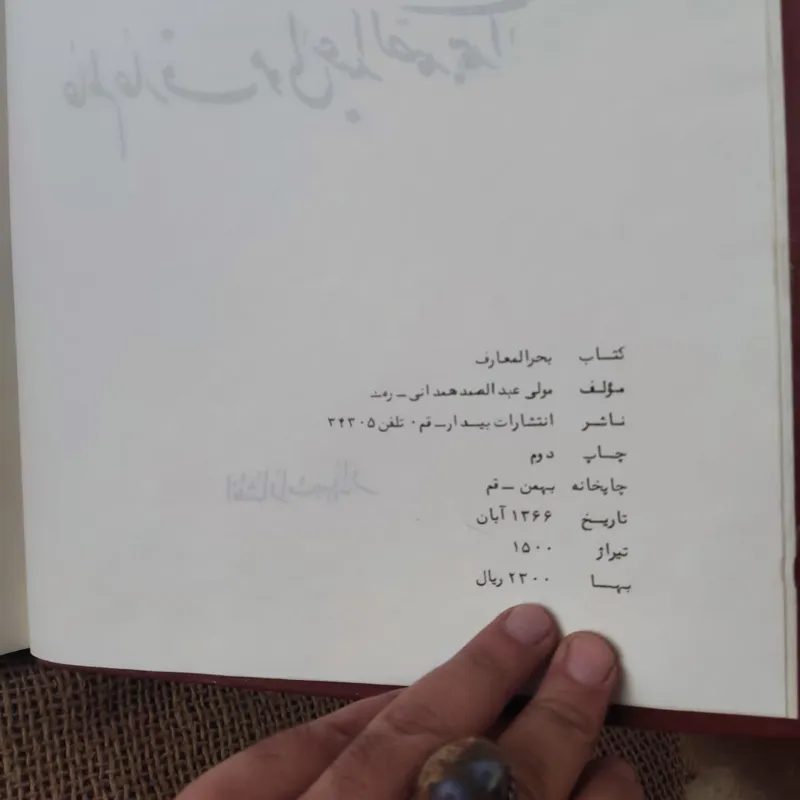 کتاب بحرالمعارف
مؤلف مولی عبدالصمدهمدانی ـ
ناشر انتشارات بیدار ـ قم۰ تلفن ۳۴۳۰۵
چاپ دوم
چاپخانه بهمن ـ قم
تاریخ ۱۳۶۶ آبان
تیراژ ۱۵۰۰
بها ۲۳۰۰ ریال